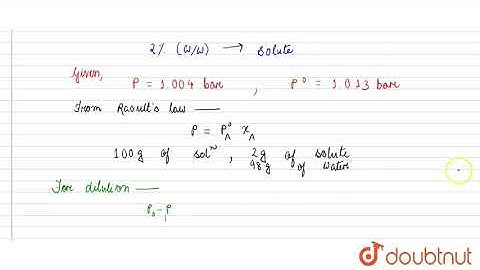 2% (W/W) → solute
Given,
P = 1.004 bar , P° = 1.013 bar
From Raoult's law —
P = P°A xA
100g of solⁿ , 2g of solute
98g of water
For dilution —
P₀-P
doubtnut